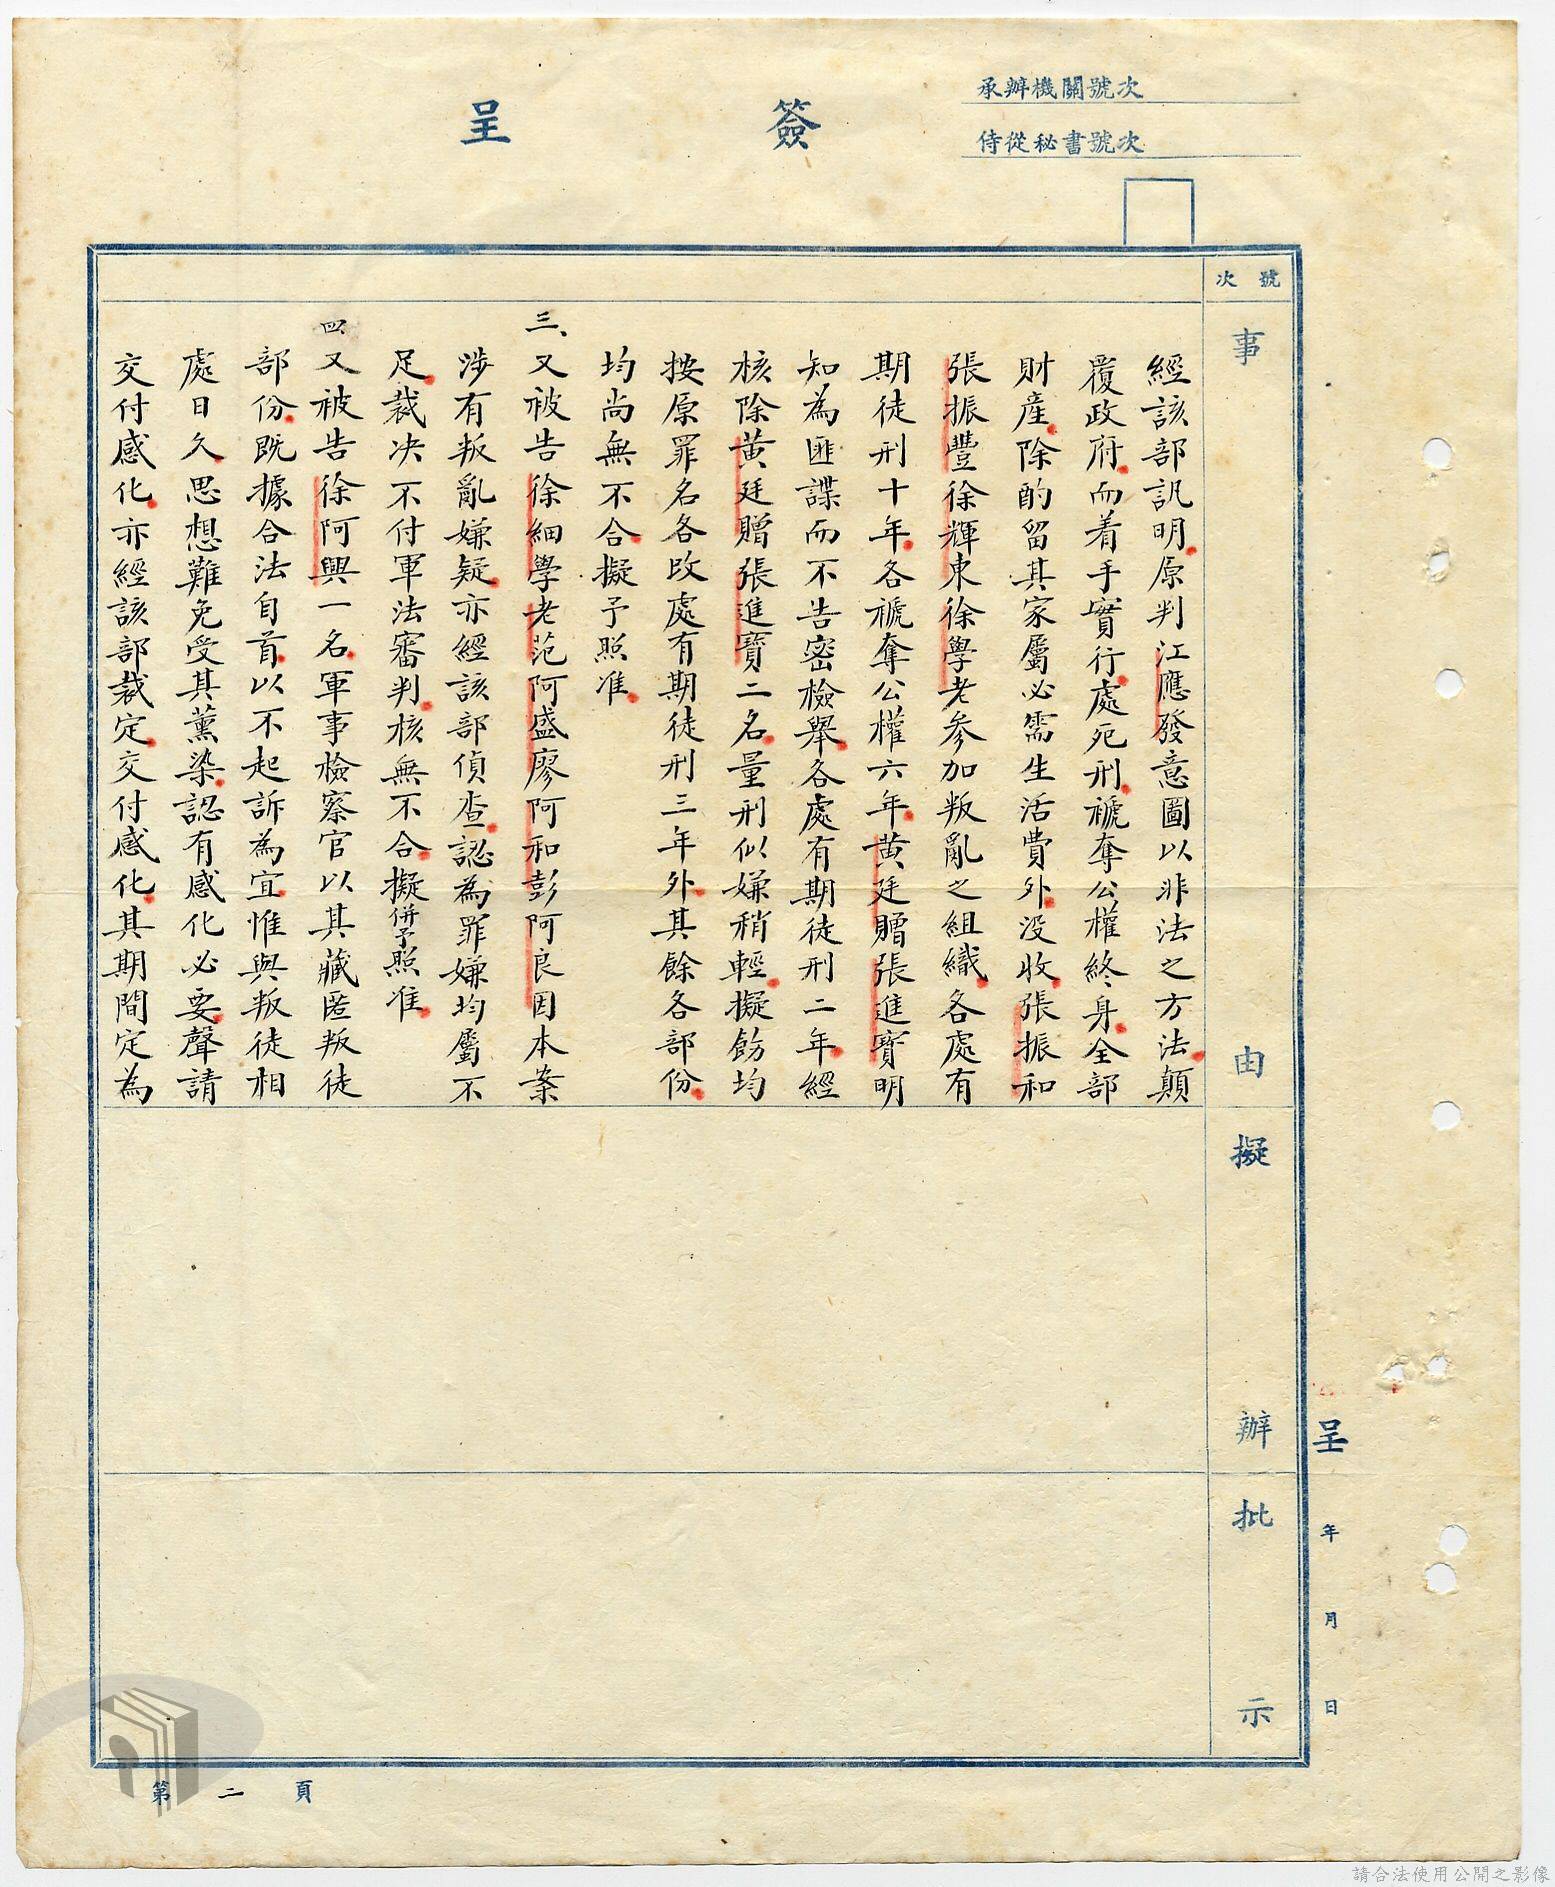 承辦機關號次
侍從秘書號次
簽呈
號次
事由
擬辦
批示
經該部訊明原判江應發意圖以非法之方法顛
覆政府而着手實行處死刑褫奪公權終身全部
財產除酌留其家屬必需生活費外沒收張振和
張振豐徐輝東徐學老參加叛亂之組織各處有
期徒刑十年各褫奪公權六年黃廷贈張進寶明
知為匪諜而不告密檢舉各處有期徒刑二年經
核除黃廷贈張進寶二名量刑似嫌稍輕擬飭均
按原罪名各改處有期徒刑三年外其餘各部份
均尚無不合擬予照准
三、又被告徐細學老范阿盛廖阿和彭阿良因本案
涉有叛亂嫌疑亦經該部偵查認為罪嫌均屬不
足裁決不付軍法審判核無不合擬併予照准
四、又被告徐阿興一名軍事檢察官以其藏匿叛徒
部份既據合法自首以不起訴為宜惟與叛徒相
處日久思想難免受其薰染認有感化必要聲請
交付感化亦經該部裁定交付感化其期間定為
呈 年 月 日
第二頁
請合法使用公開之影像